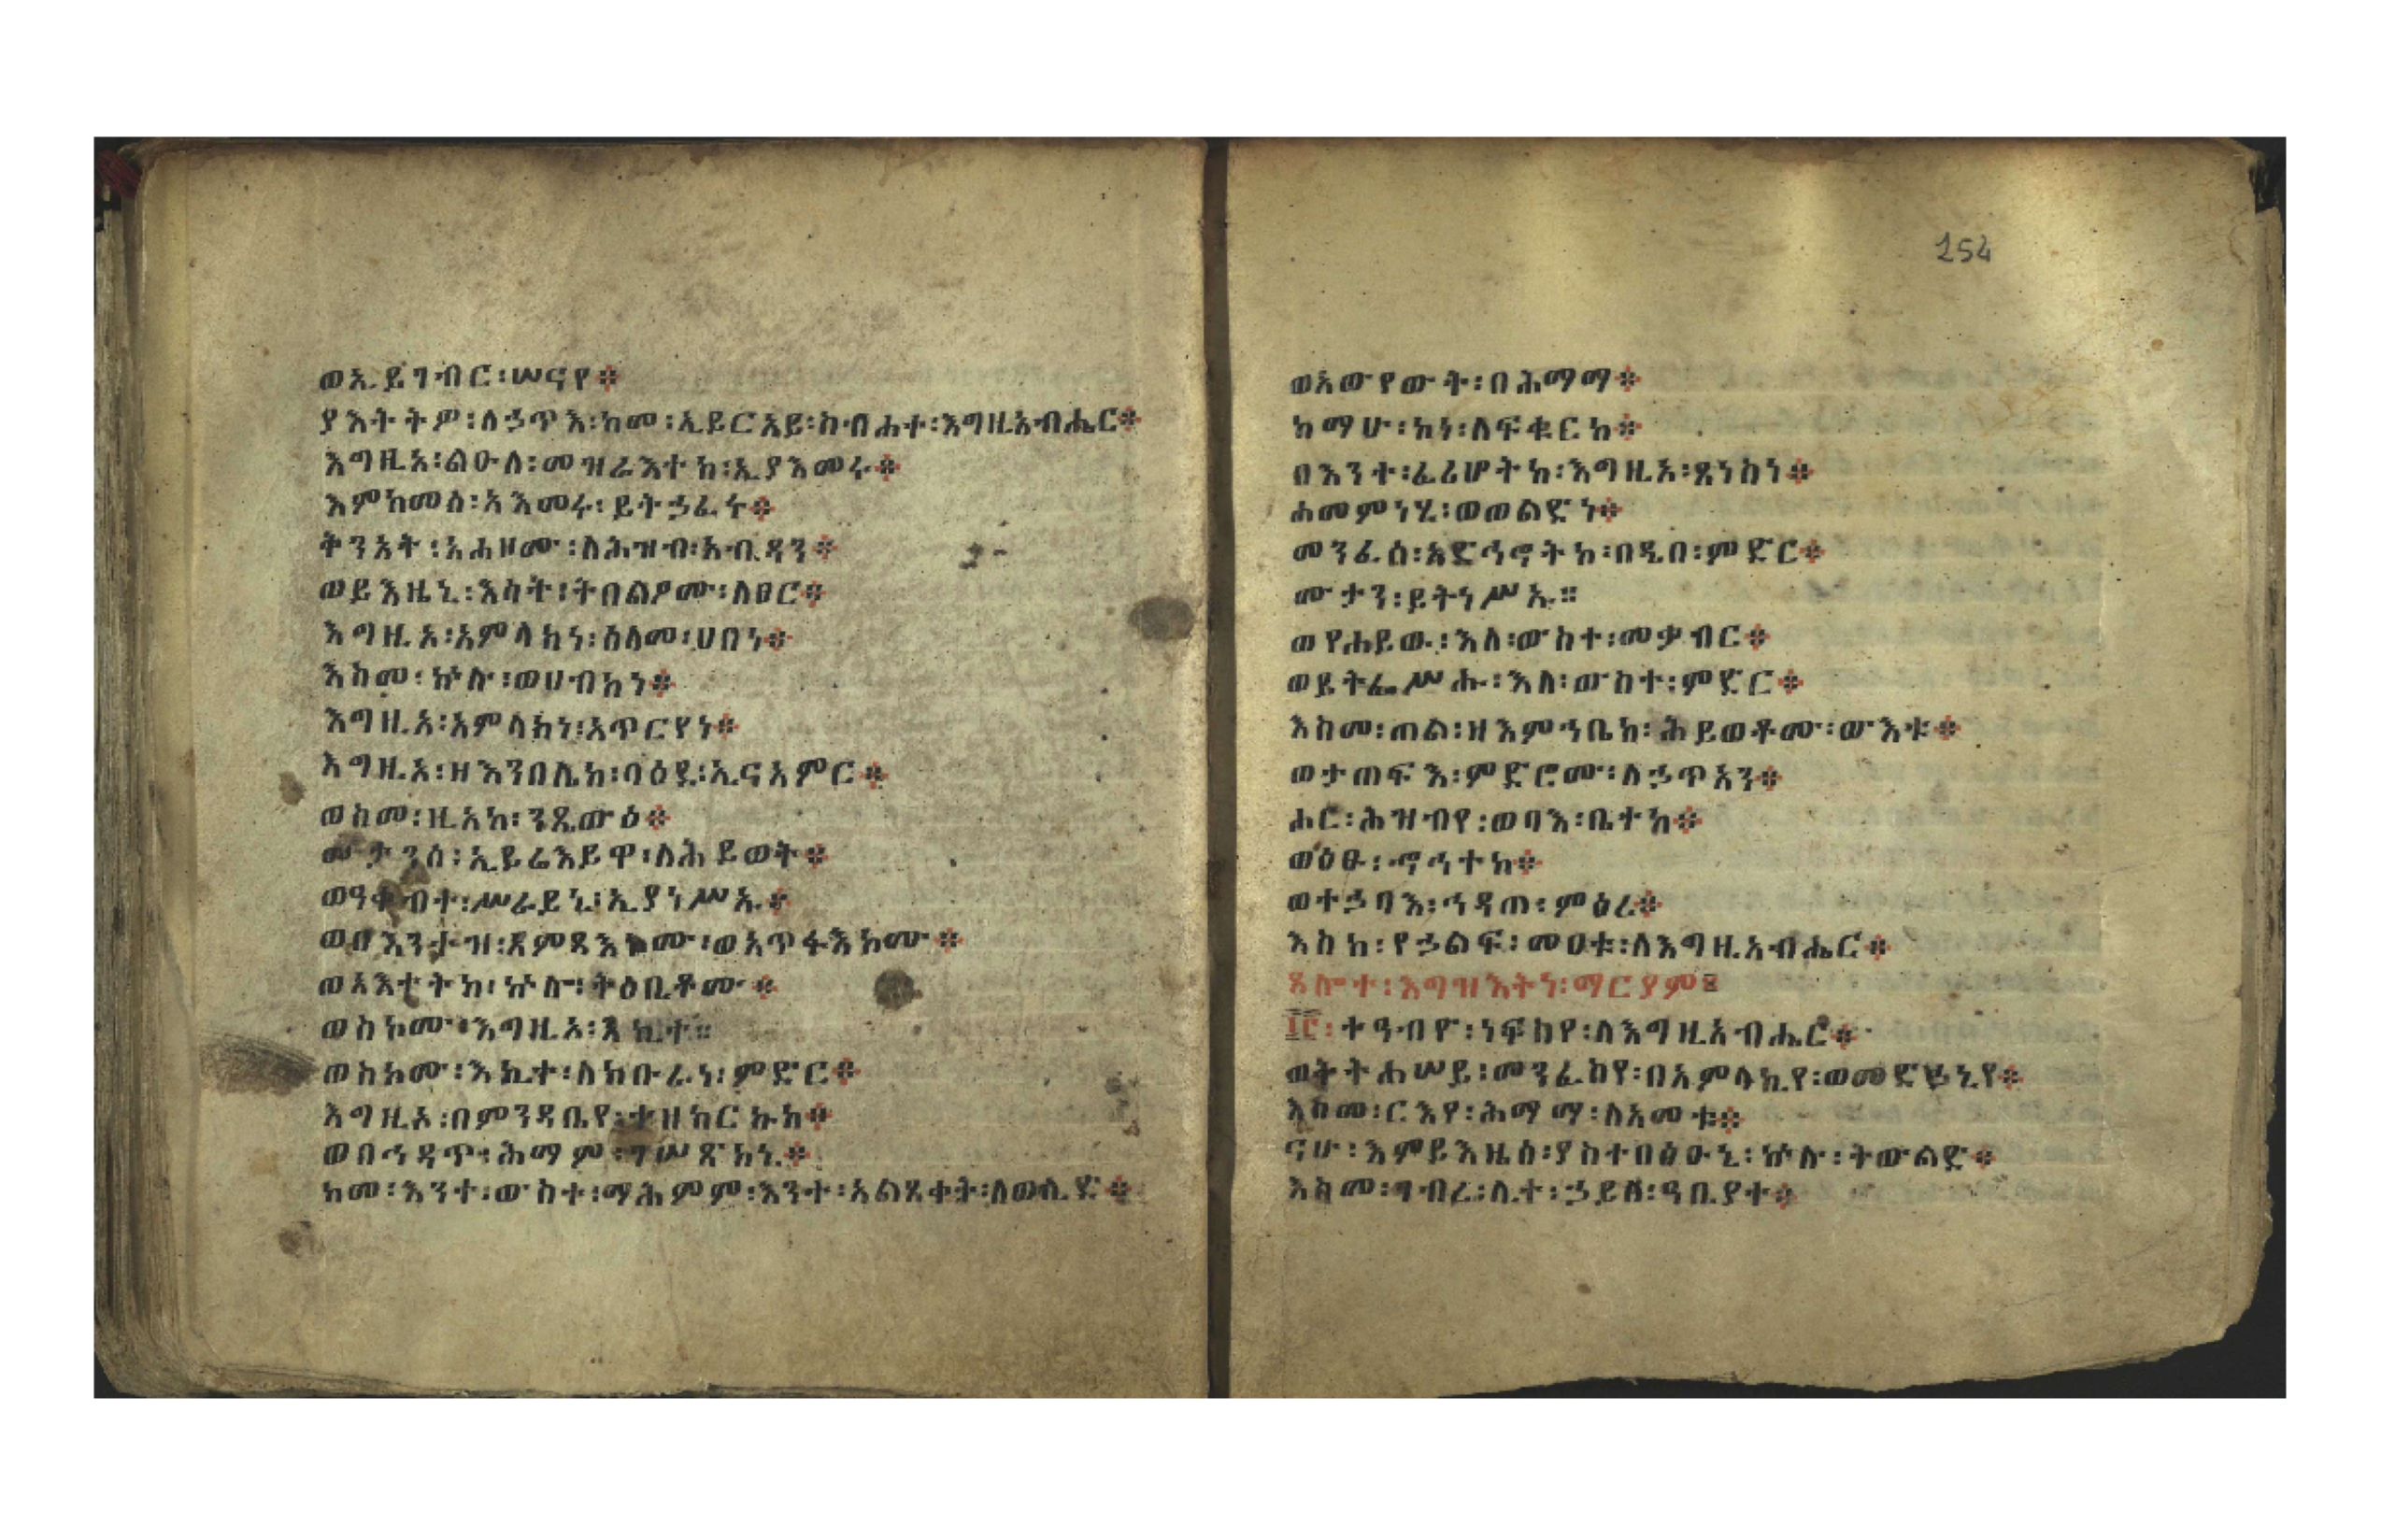 ወኢይገብር፡ሠናየ፨
ያእትትዎ፡ለኃጥእ፡ከመ፡ኢይርአይ፡ስብሐተ፡እግዚአብሔር፨
እግዚአ፡ልዑለ፡መዝራእተከ፡ኢያእመሩ፨
እምከመሰ፡አእመሩ፡ይትኃፈሩ፨
ቅንአት፡አሐዞሙ፡ለሕዝብ፡አብዳን፨
ወይእዜኒ፡እሳት፡ትበልዖሙ፡ለፀር፨
እግዚአ፡አምላክነ፡ሰላመ፡ሀበነ፨
እስመ፡ኵሉ፡ወሀብከነ፨
እግዚአ፡አምላክነ፡አጥርየነ፨
እግዚአ፡ዘእንበሌከ፡ባዕደ፡ኢናአምር፨
ወስመ፡ዚአከ፡ንጼውዕ፨
መታንሰ፡ኢይሬእይዋ፡ለሕይወት፨
ወዓቀብተ፡ሥራይኒ፡ኢያነሥኡ፨
ወበእንተዝ፡አምጻእኮሙ፡ወአጥፋእከሙ፨
ወአእተትከ፡ኵሎ፡ትዕቢቶሙ፨
ወስኮሙ፡እግዚአ፡እኪተ።
ወስኮሙ፡እኪተ፡ለክቡራነ፡ምድር፨
እግዚኦ፡በምንዳቤየ፡ተዘከርኩከ፨
ወበኅዳጥ፡ሕማም፡ገሠጽከኒ፨
ከመ፡እንተ፡ውስተ፡ማሕምም፡እንተ፡አልጸቀት፡ለወሊድ፨
254
ወአውየውት፡በሕማማ፨
ከማሁ፡ከነ፡ለፍቁርከ፨
በእንተ፡ፈሪሆትከ፡እግዚአ፡ጸነስነ፨
ሐመምነሂ፡ወወልድነ፨
መንፈሰ፡አድኅኖትከ፡በዲበ፡ምድር፨
ሙታን፡ይትነሥኡ።
ወየሐይዉ፡እለ፡ውስተ፡መቃብር፨
ወይትፌሥሑ፡እለ፡ውስተ፡ምድር፨
እስመ፡ጠል፡ዘእምኅቤከ፡ሕይወቶሙ፡ውእቱ፨
ወታጠፍእ፡ምድሮሙ፡ለኃጥአን፨
ሐር፡ሕዝብየ፡ወባእ፡ቤተከ፨
ወዕፁ፡ኆኅተከ፨
ወተኃባእ፡ኅዳጠ፡ምዕረ፨
እስከ፡የኃልፍ፡መዐቱ፡ለእግዚአብሔር፨
ጸሎተ፡እግዝእትነ፡ማርያም፨
፲ር፡ተዓብዮ፡ነፍስየ፡ለእግዚአብሔር፨
ወትትሐሠይ፡መንፈስየ፡በአምላኪየ፡ወመድኃኒየ፨
እስመ፡ርእየ፡ሕማማ፡ለአመቱ፨
ናሁ፡እምይእዜሰ፡ያስተበፅዑኒ፡ኵሉ፡ትውልድ፨
እስመ፡ገብረ፡ሊተ፡ኃይለ፡ዓቢያተ፨